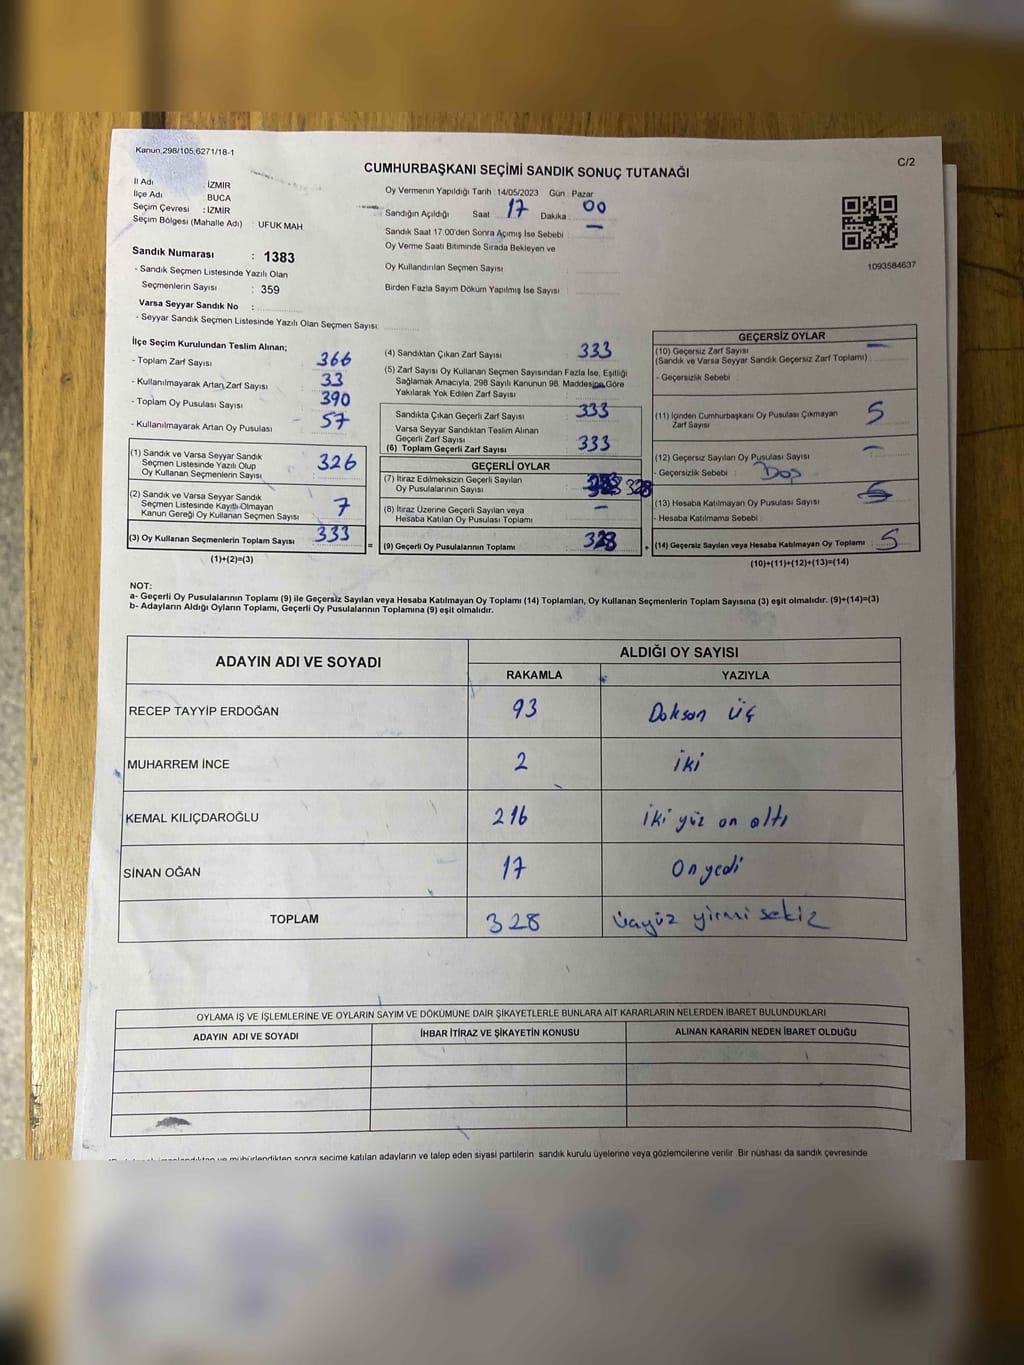 Kanun 298/105,6271/18-1
C/2
CUMHURBAŞKANI SEÇİMİ SANDIK SONUÇ TUTANAĞI
İl Adı : İZMİR
İlçe Adı : BUCA
Seçim Çevresi : İZMİR
Seçim Bölgesi (Mahalle Adı) UFUK MAH
Sandık Numarası : 1383
- Sandık Seçmen Listesinde Yazılı Olan
Seçmenlerin Sayısı : 359
Varsa Seyyar Sandık No :
- Seyyar Sandık Seçmen Listesinde Yazılı Olan Seçmen Sayısı:
Oy Vermenin Yapıldığı Tarih : 14/05/2023 Gün : Pazar
Sandığın Açıldığı Saat 17 Dakika : 00
Sandık Saat 17:00'den Sonra Açımış İse Sebebi : -
Oy Verme Saati Bitiminde Sırada Bekleyen ve
Oy Kullandırılan Seçmen Sayısı
Birden Fazla Sayım Döküm Yapılmış İse Sayısı
1093584637
İlçe Seçim Kurulundan Teslim Alınan;
- Toplam Zarf Sayısı 366
- Kullanılmayarak Artan Zarf Sayısı 33
- Toplam Oy Pusulası Sayısı 390
- Kullanılmayarak Artan Oy Pusulası - 57
(1) Sandık ve Varsa Seyyar Sandık
Seçmen Listesinde Yazılı Olup
Oy Kullanan Seçmenlerin Sayısı 326
(2) Sandık ve Varsa Seyyar Sandık
Seçmen Listesinde Kayıtlı Olmayan
Kanun Gereği Oy Kullanan Seçmen Sayısı 7
(3) Oy Kullanan Seçmenlerin Toplam Sayısı 333
(1)+(2)=(3)
(4) Sandıktan Çıkan Zarf Sayısı 333
(5) Zarf Sayısı Oy Kullanan Seçmen Sayısından Fazla İse, Eşitliği
Sağlamak Amacıyla, 298 Sayılı Kanunun 98. Maddesine Göre
Yakılarak Yok Edilen Zarf Sayısı -
Sandıkta Çıkan Geçerli Zarf Sayısı : 333
Varsa Seyyar Sandıktan Teslim Alınan
Geçerli Zarf Sayısı
(6) Toplam Geçerli Zarf Sayısı : 333
GEÇERLİ OYLAR
(7) İtiraz Edilmeksizin Geçerli Sayılan
Oy Pusulalarının Sayısı : 328
(8) İtiraz Üzerine Geçerli Sayılan veya
Hesaba Katılan Oy Pusulası Toplamı : -
= (9) Geçerli Oy Pusulalarının Toplamı : 328
GEÇERSİZ OYLAR
(10) Geçersiz Zarf Sayısı -
(Sandık ve Varsa Seyyar Sandık Geçersiz Zarf Toplamı) :
- Geçersizlik Sebebi :
(11) İçinden Cumhurbaşkanı Oy Pusulası Çıkmayan
Zarf Sayısı : 5
(12) Geçersiz Sayılan Oy Pusulası Sayısı : -
- Geçersizlik Sebebi : Boş
(13) Hesaba Katılmayan Oy Pusulası Sayısı
- Hesaba Katılmama Sebebi :
+ (14) Geçersiz Sayılan veya Hesaba Katılmayan Oy Toplamı : 5
(10)+(11)+(12)+(13)=(14)
NOT:
a- Geçerli Oy Pusulalarının Toplamı (9) ile Geçersiz Sayılan veya Hesaba Katılmayan Oy Toplamı (14) Toplamları, Oy Kullanan Seçmenlerin Toplam Sayısına (3) eşit olmalıdır. (9)+(14)=(3)
b- Adayların Aldığı Oyların Toplamı, Geçerli Oy Pusulalarının Toplamına (9) eşit olmalıdır.
ADAYIN ADI VE SOYADI
ALDIĞI OY SAYISI
RAKAMLA YAZIYLA
RECEP TAYYİP ERDOĞAN 93 Doksan üç
MUHARREM İNCE 2 iki
KEMAL KILIÇDAROĞLU 216 iki yüz on altı
SİNAN OĞAN 17 On yedi
TOPLAM 328 üçyüz yirmi sekiz
OYLAMA İŞ VE İŞLEMLERİNE VE OYLARIN SAYIM VE DÖKÜMÜNE DAİR ŞİKAYETLERLE BUNLARA AİT KARARLARIN NELERDEN İBARET BULUNDUKLARI
ADAYIN ADI VE SOYADI İHBAR İTİRAZ VE ŞİKAYETİN KONUSU ALINAN KARARIN NEDEN İBARET OLDUĞU
mühürlendikten sonra seçime katılan adayların ve talep eden siyasi partilerin sandık kurulu üyelerine veya gözlemcilerine verilir. Bir nüshası da sandık çevresinde